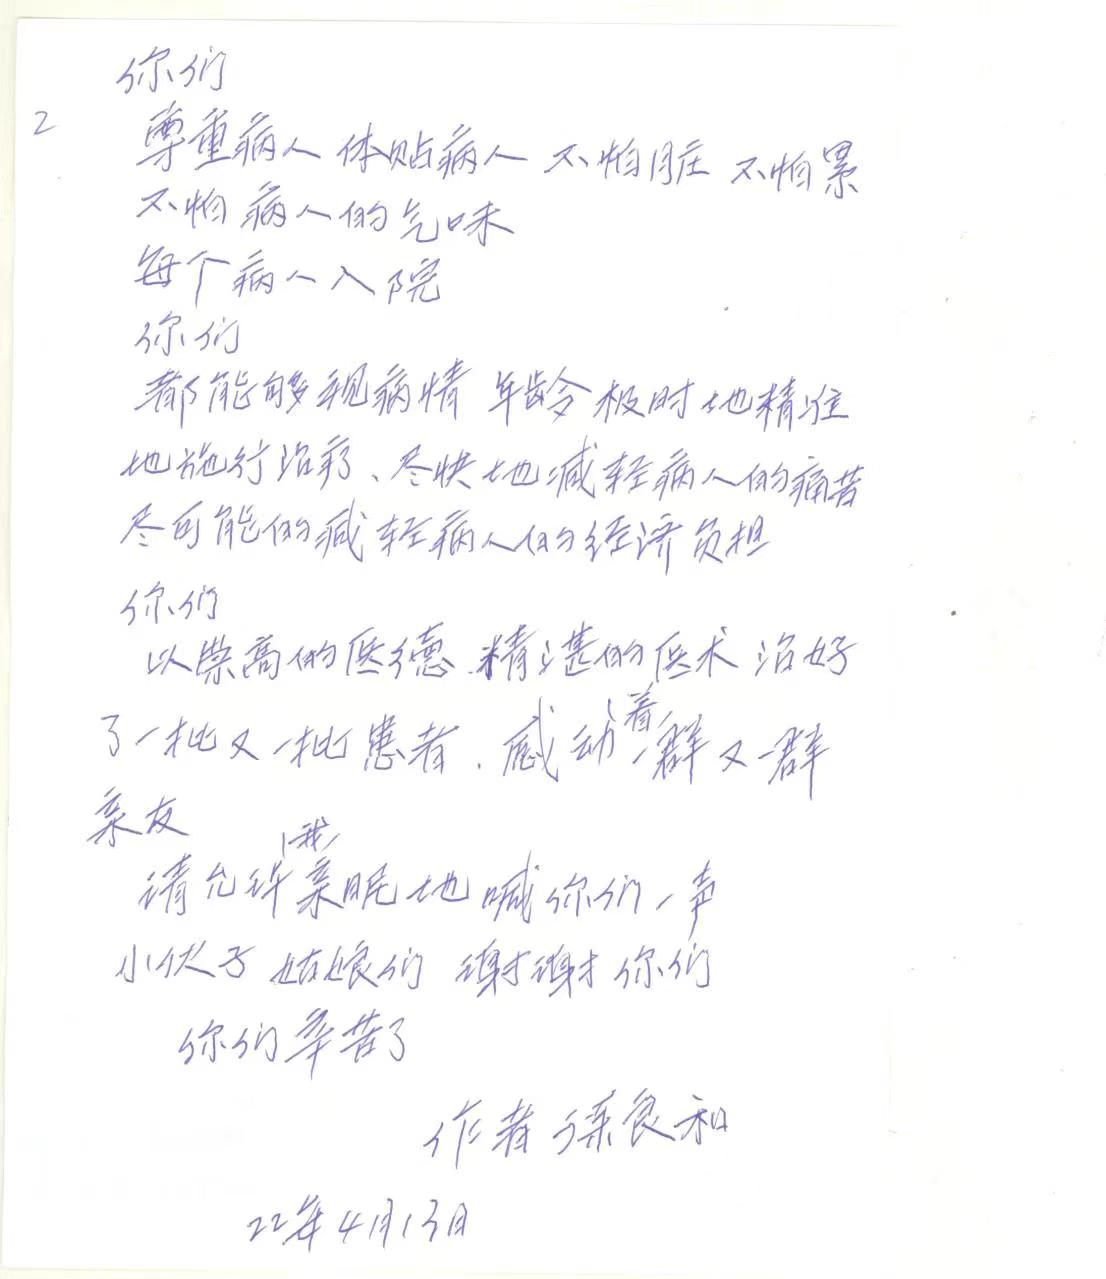 2
你们
尊重病人 体贴病人 不怕脏 不怕累
不怕病人的气味
每个病人入院
你们
都能够视病情 年龄极时地精准
地施行治疗、尽快地减轻病人的痛苦
尽可能的减轻病人的经济负担
你们
以崇高的医德、精湛的医术 治好
了一批又一批患者、感动着一群又一群
亲友
请允许我亲昵地喊你们一声
小伙子 姑娘们 谢谢你们
你们辛苦了
作者 徐良和
22年4月13日